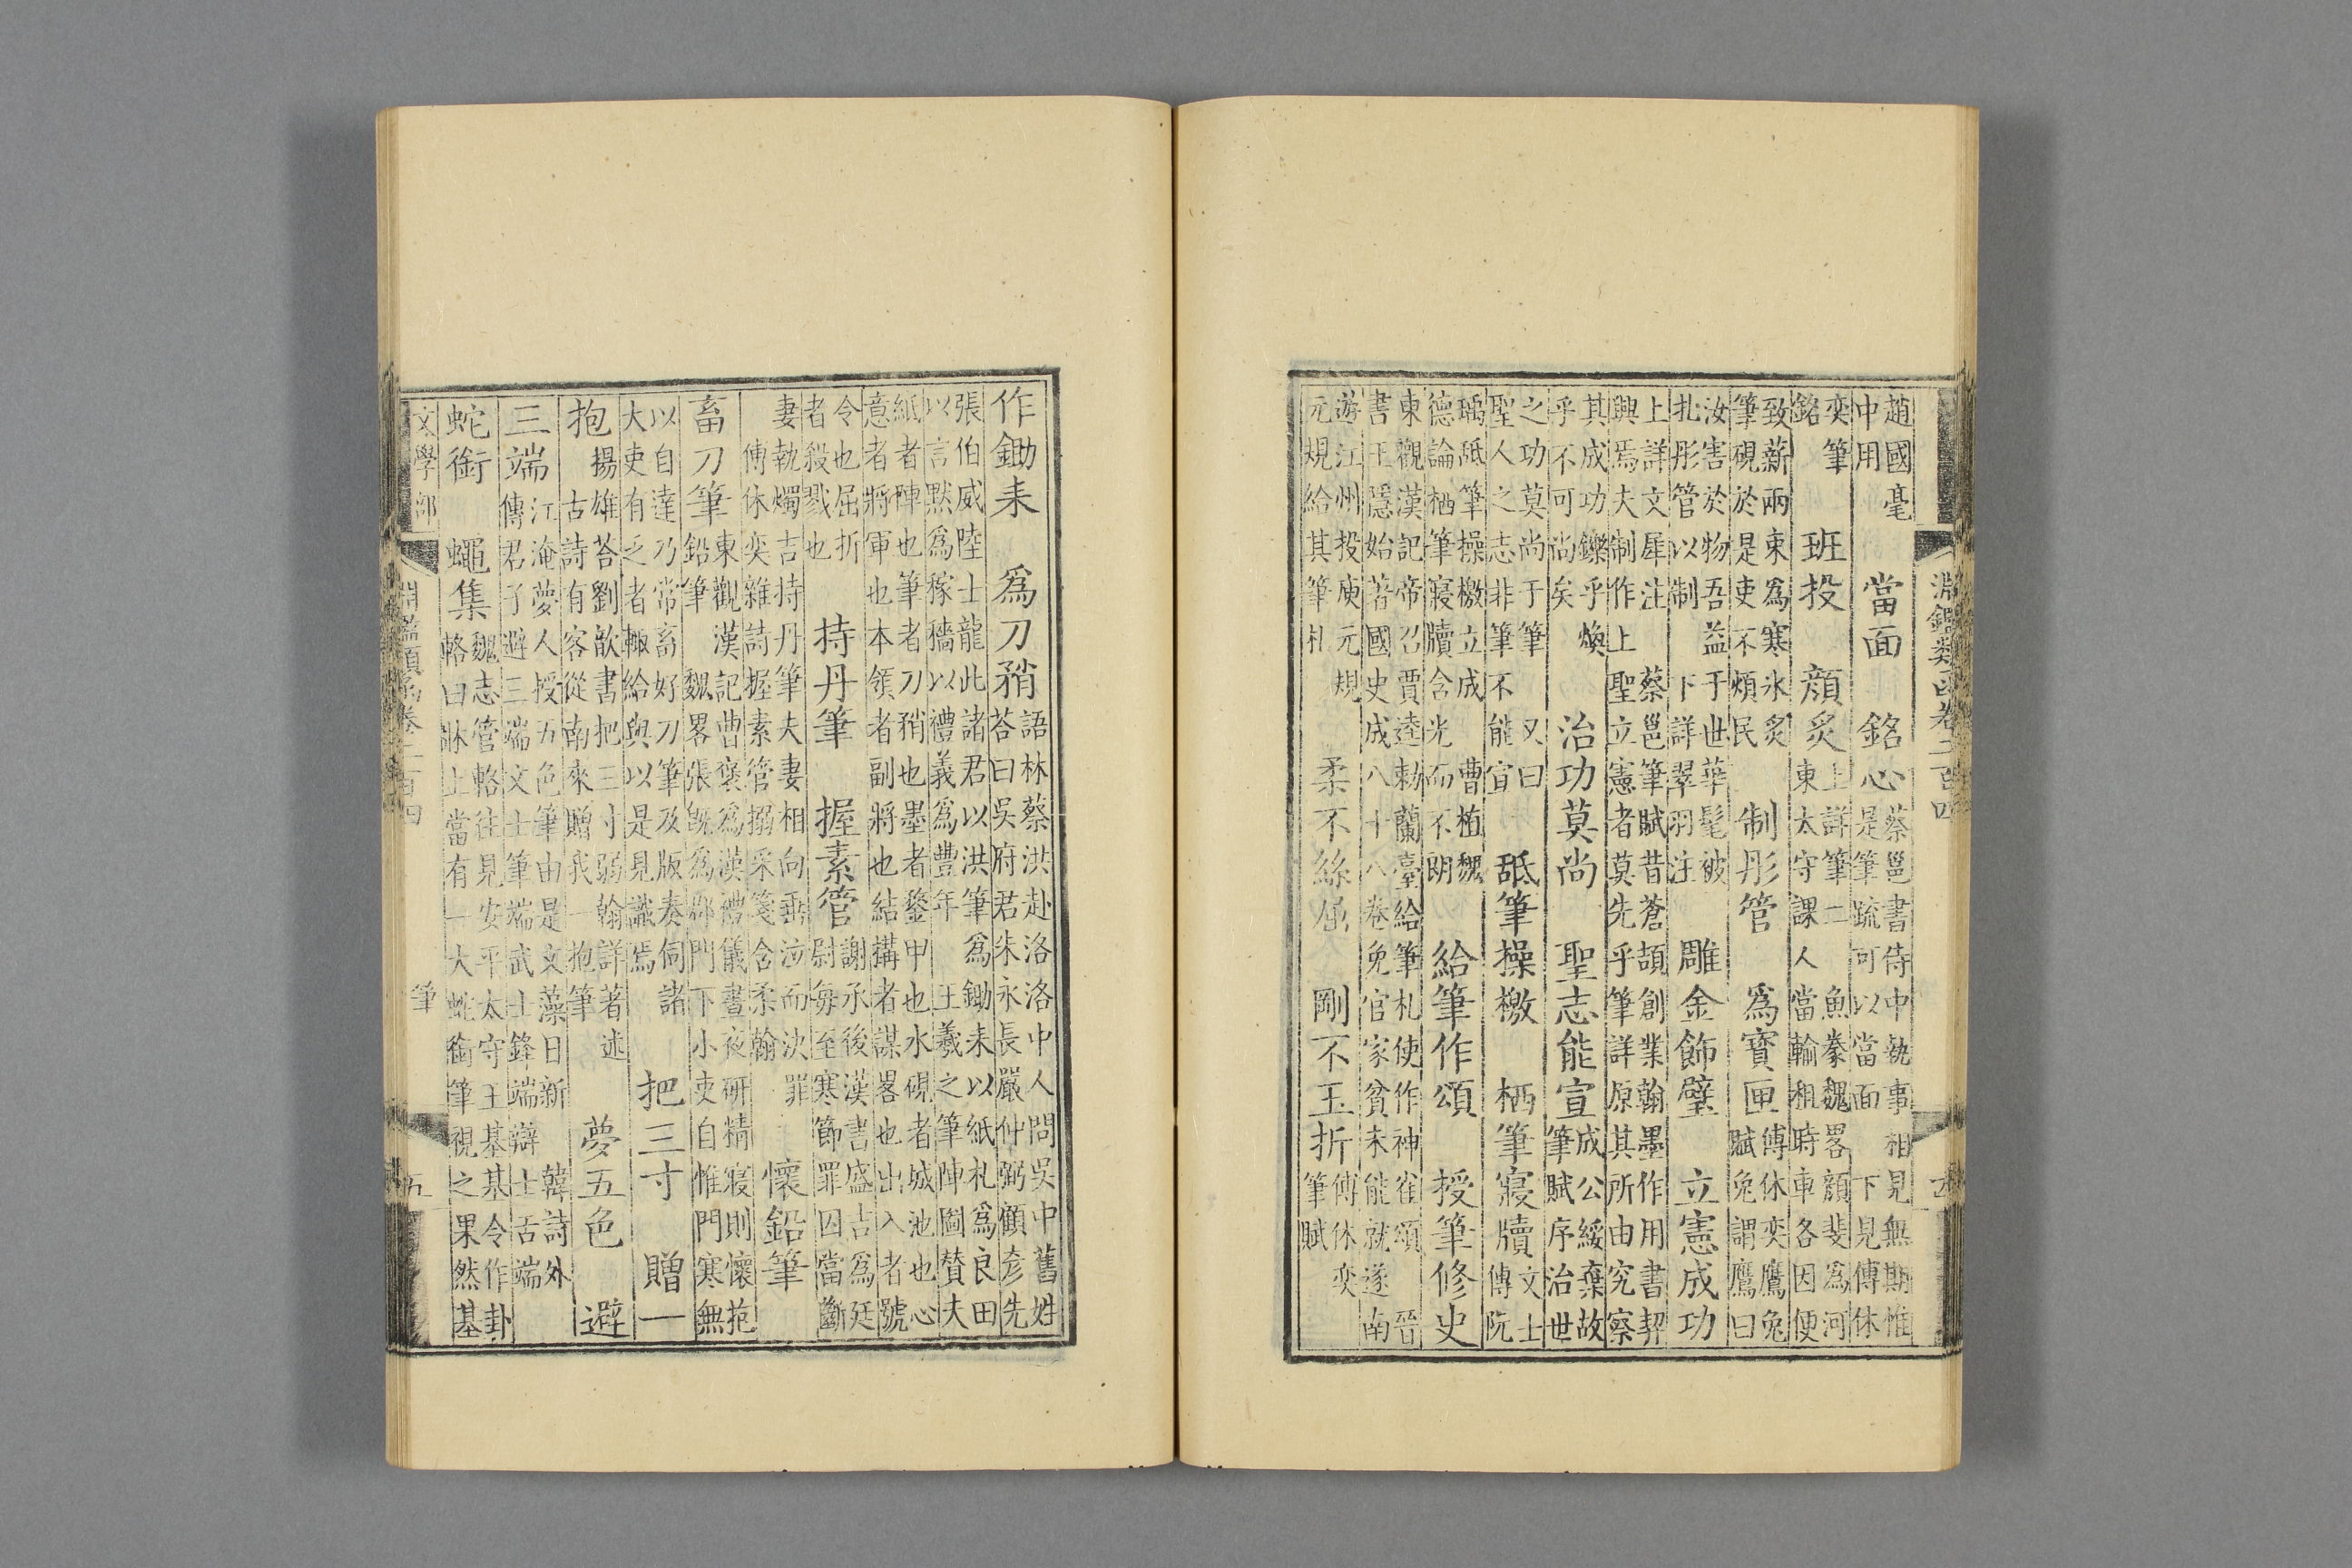 淵鑑類函卷二百四
趙國毫中用 當面 銘心 蔡邕書侍中執事相見無期惟是筆疏可以當面 下見傅休
奕筆銘 班投 顔炙 上詳筆二 魚豢魏畧顔斐為河東太守課人當輸租時車各因便
致薪兩束為寒氷炙筆硯於是吏不煩民 制彤管 為寶匣 傅休奕鷹兔賦兔謂鷹曰
汝害於物吾益于世華髦被札彤管以制 下詳翠羽注 雕金飾璧 立憲成功
上詳文犀注 蔡邕筆賦昔蒼頡創業翰墨作用書契興焉夫制作上聖立憲者莫先乎筆詳原其所由究察
其成功鑠乎煥乎不可尚矣 治功莫尚 聖志能宣 成公綏棄故筆賦序治世
之功莫尚于筆 又曰聖人之志非筆不能宣 舐筆操檄 栖筆寢牘 文士傳阮
瑀舐筆操檄立成 曹植魏德論栖筆寢牘含光而不朗 給筆作頌 授筆修史
東觀漢記帝召賈逵勅蘭臺給筆札使作神雀頌 晉書王隱始著國史成八十八卷免官家貧未能就遂南
遊江州投庾元規元規給其筆札 柔不絲屈 剛不玉折 傅休奕筆賦
作鋤耒 為刀矟 語林蔡洪赴洛洛中人問吳中舊姓荅曰吳府君朱永長嚴仲弼顧彥先
張伯威陸士龍此諸君以洪筆為鋤耒以紙札為良田以言默為稼穡以禮義為豐年 王羲之筆陣圖賛夫
紙者陣也筆者刀矟也墨者鍪甲也水硯者城池也心意者將軍也本領者副將也結搆者謀畧也出入者號
令也屈折者殺戮也 持丹筆 握素管 謝承後漢書盛吉為廷尉每至寒節罪囚當斷
妻執燭吉持丹筆夫妻相向垂泣而決罪 傅休奕雜詩握素管搦采箋含柔翰 懷鉛筆
畜刀筆 東觀漢記曹褒為漢禮儀晝夜研精寢則懷抱鉛筆 魏畧張既為郡門下小吏自惟門寒無
以自達乃常畜好刀筆及版奏伺諸大吏有乏者輒給與以是見識焉 把三寸 贈一
抱 揚雄荅劉歆書把三寸弱翰詳著述 古詩有客從南來贈我一抱筆 夢五色 避
三端 江淹夢人授五色筆由是文藻日新 韓詩外傳君子避三端文士筆端武士鋒端辯士舌端
蛇銜 蠅集 魏志管輅往見安平太守王基基令作卦輅曰牀上當有一大蛇銜筆視之果然基
文學部 淵鑑類函卷二百四 筆 五